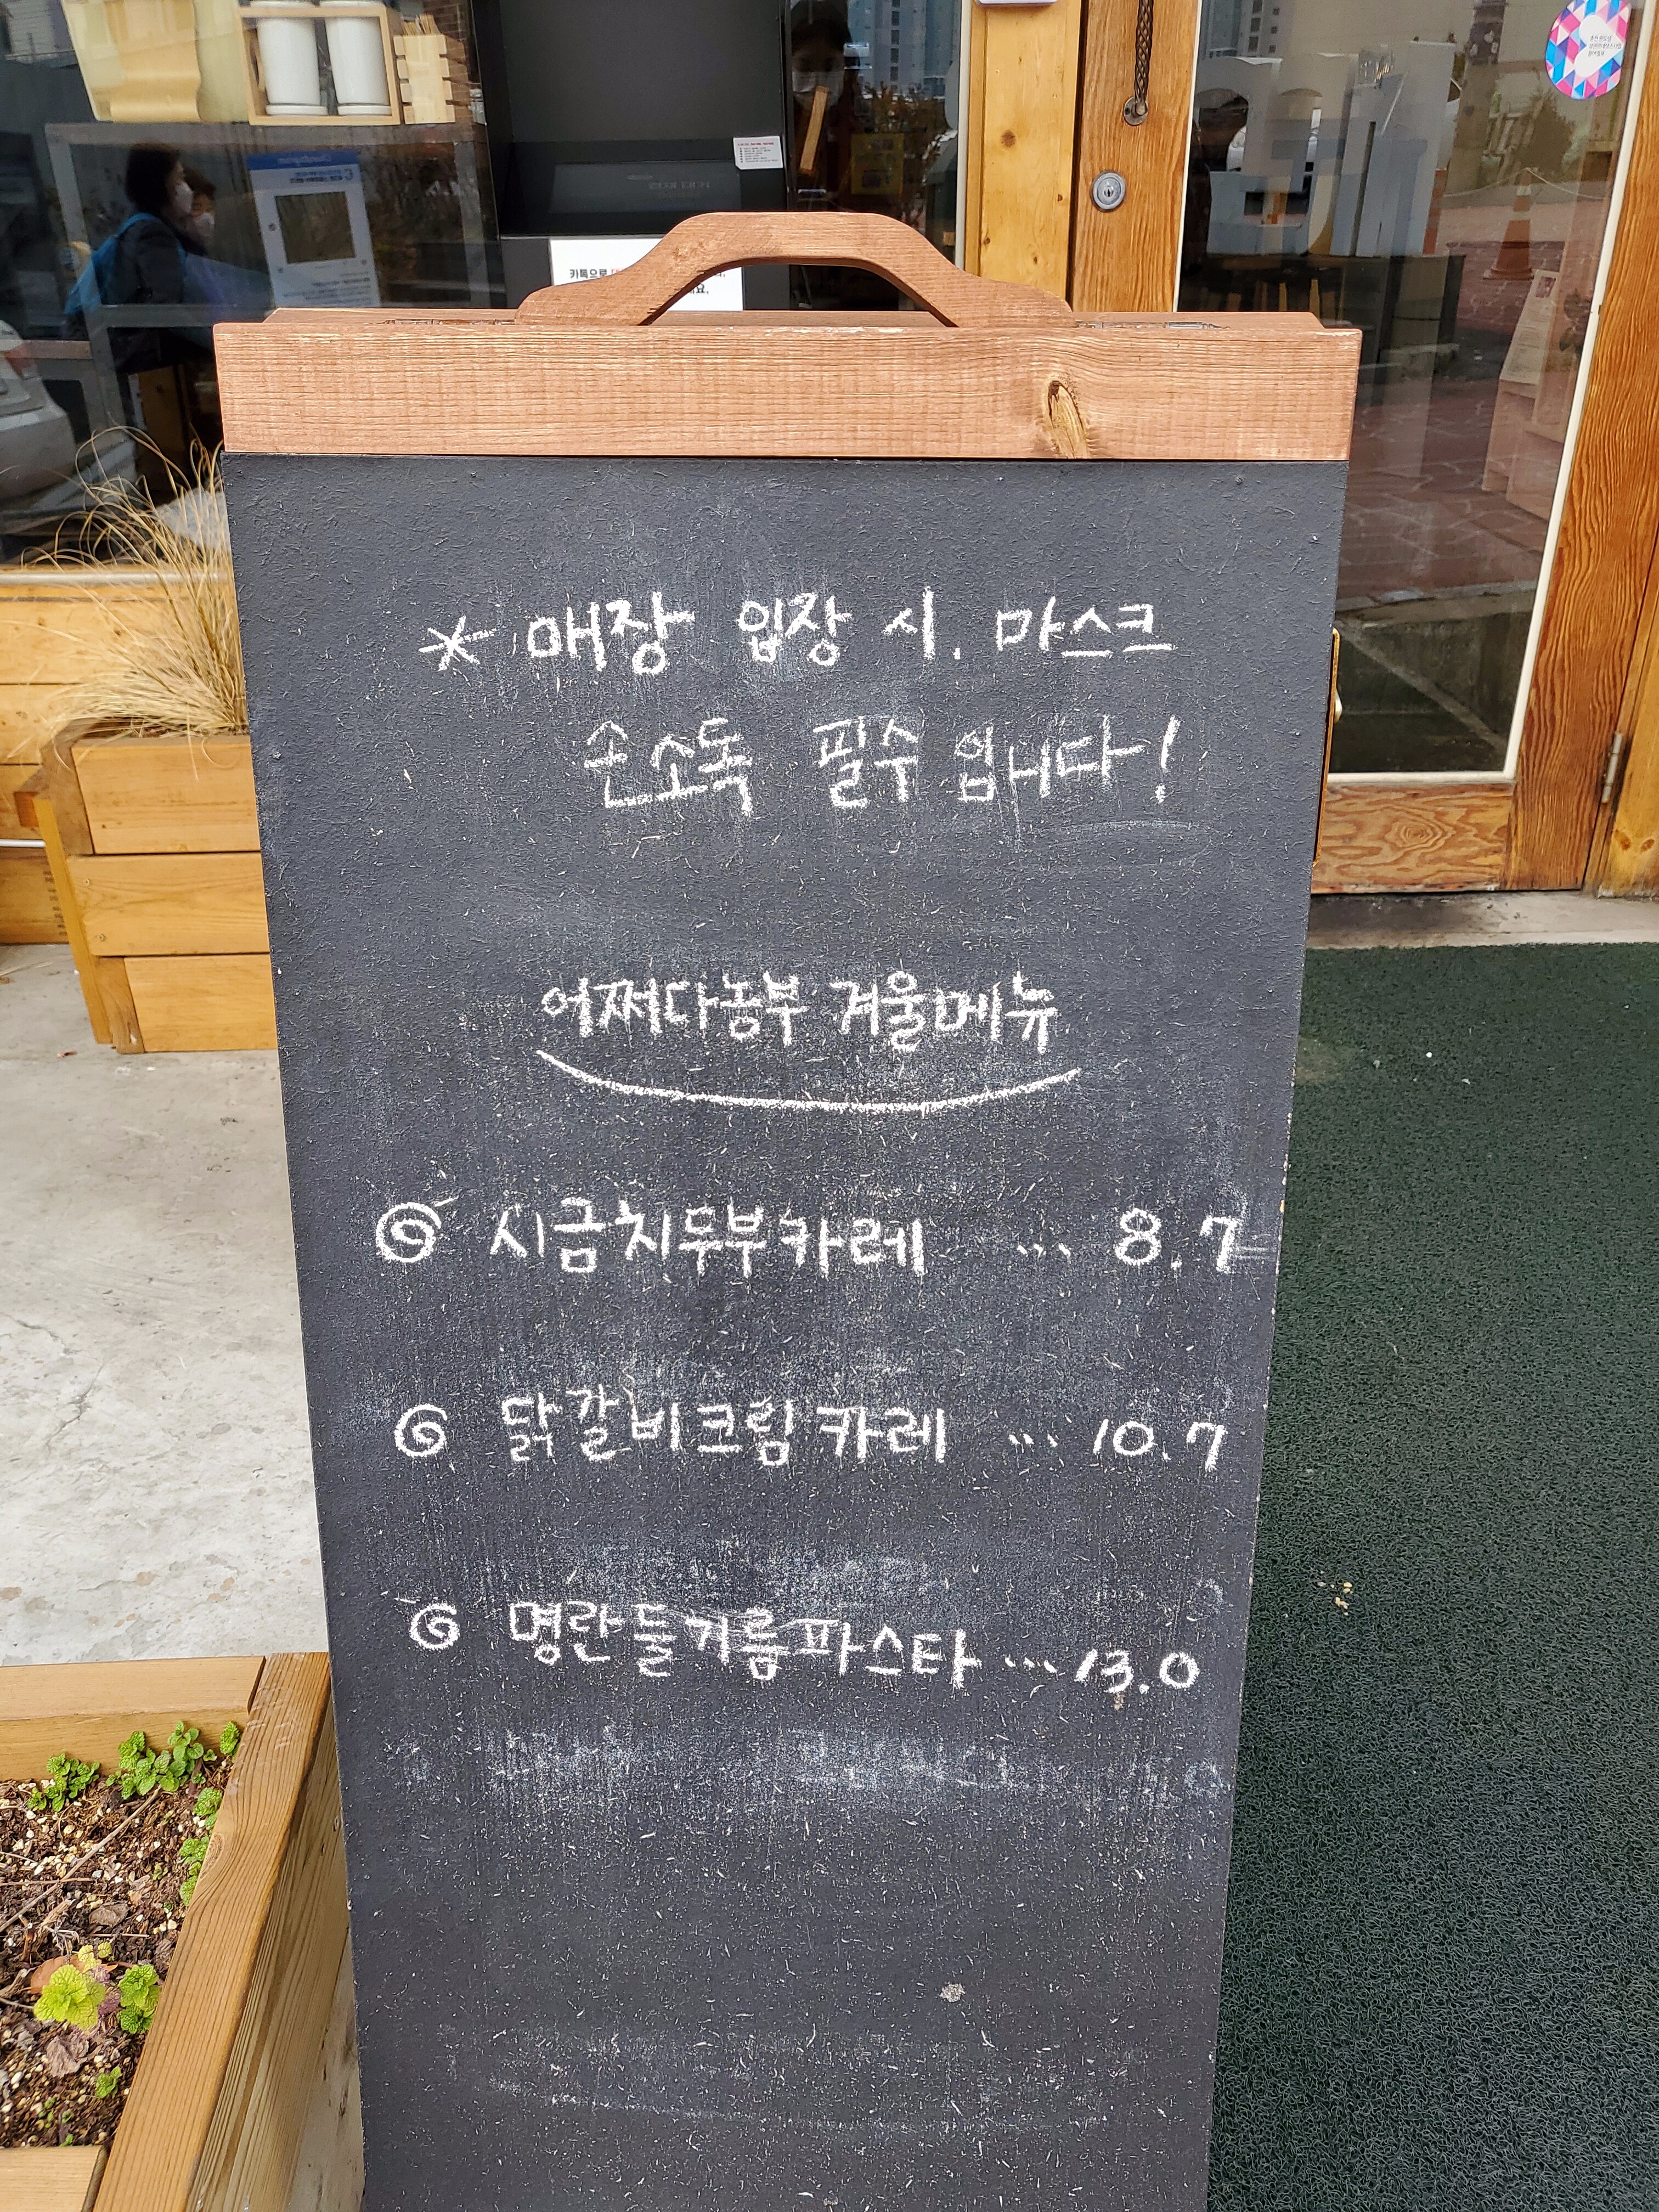 카톡으로
* 매장 입장 시. 마스크
손소독 필수 입니다!
어쩌다농부 겨울메뉴
시금치두부카레 ... 8.7
닭갈비크림카레 ... 10.7
명란들기름파스타 ... 13.0